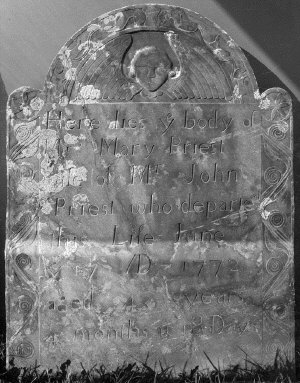 Here lies ẏ body of
Mary Priest
of Mr John
Priest who departe
this Life June
AD 1772
aged years
months & Days